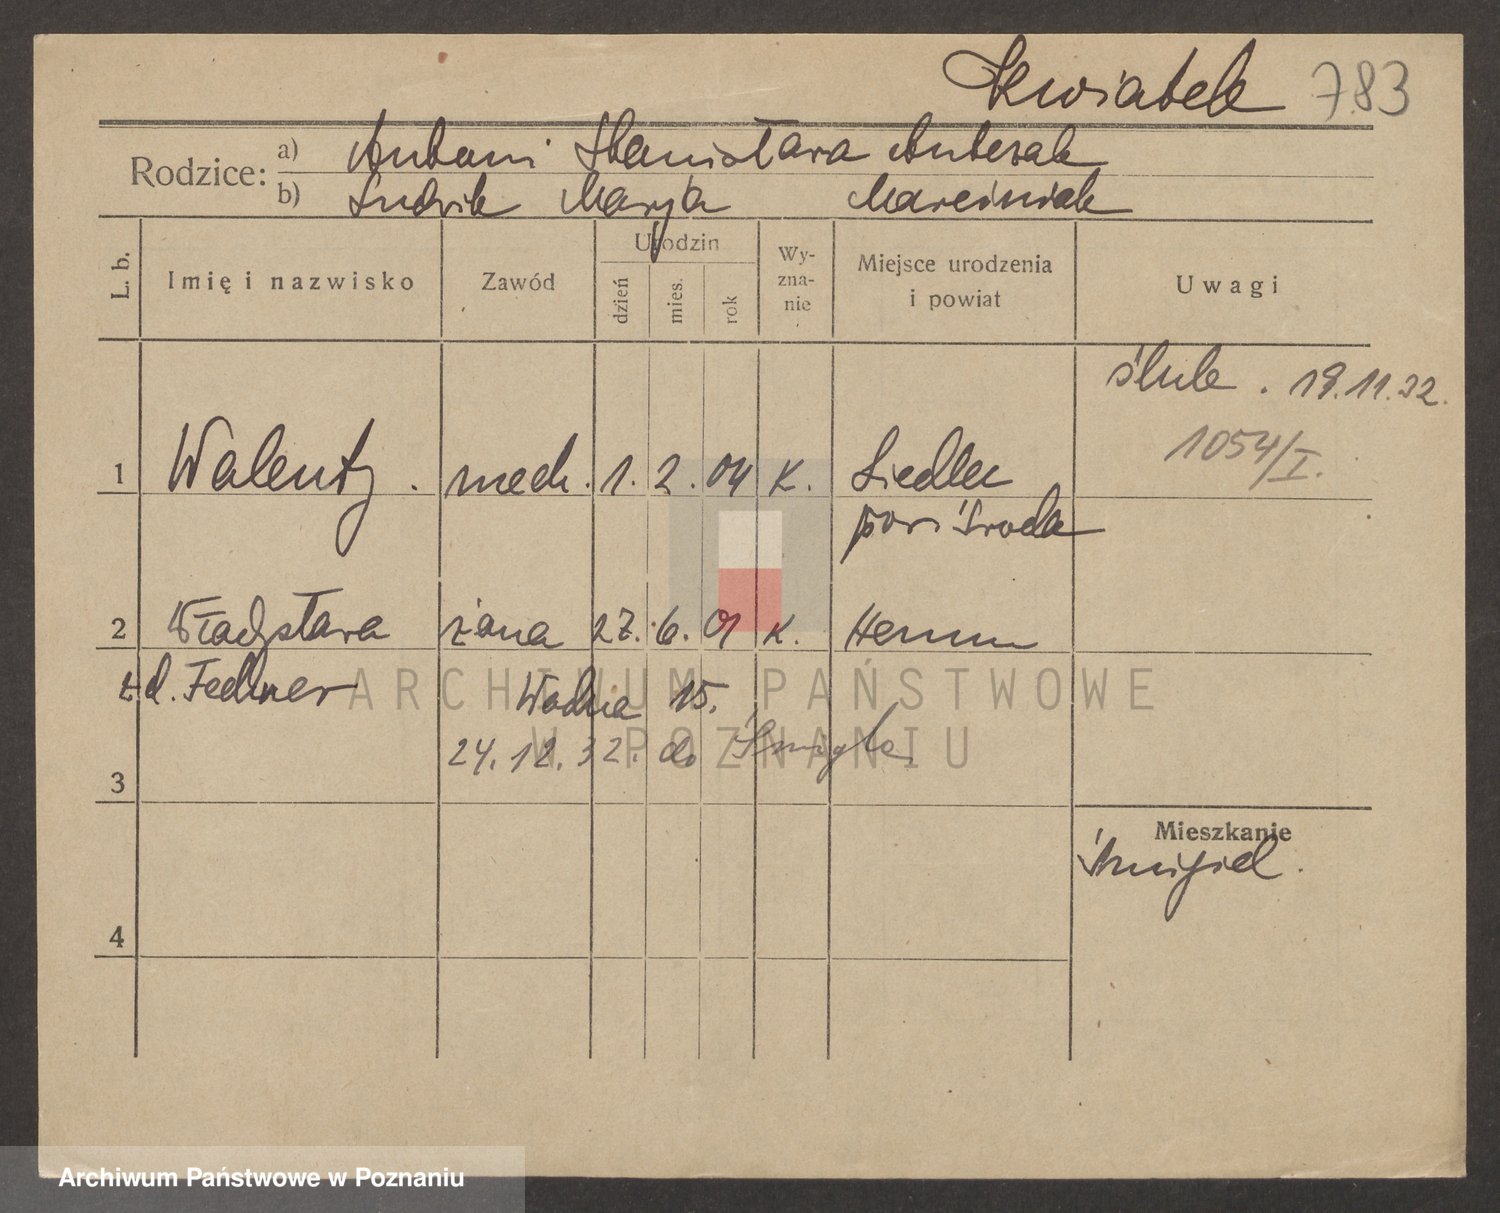 Kwiatek 783
Rodzice: a) Antoni Stanisława Antczak
b) Ludwik Maryja Marciniak
L. b.
Imię i nazwisko
Zawód
Urodzin
dzień
mies.
rok
Wy-
zna-
nie
Miejsce urodzenia
i powiat
Uwagi
ślub . 19.11.32.
1054/I.
1 Walenty . mech. 1. 2. 04 K. Siedlec
pow Środa
2 Władysława żona 27. 6. 01 K. Herne
z d. Fechner Wodna 15.
24.12.32. do Śmigla
3
Mieszkanie
Śmigiel.
4
ARCHIWUM PAŃSTWOWE
W POZNANIU
Archiwum Państwowe w Poznaniu